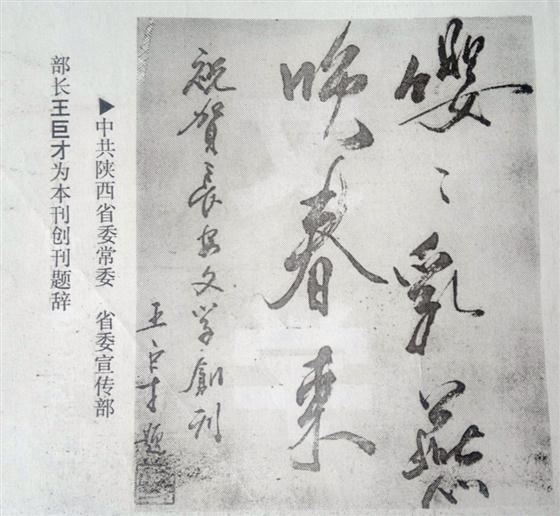 嚶〻乳燕
晚春来
祝賀长安文学創刊
王巨才题
▶中共陕西省委常委 省委宣传部
部长王巨才为本刊创刊题辞